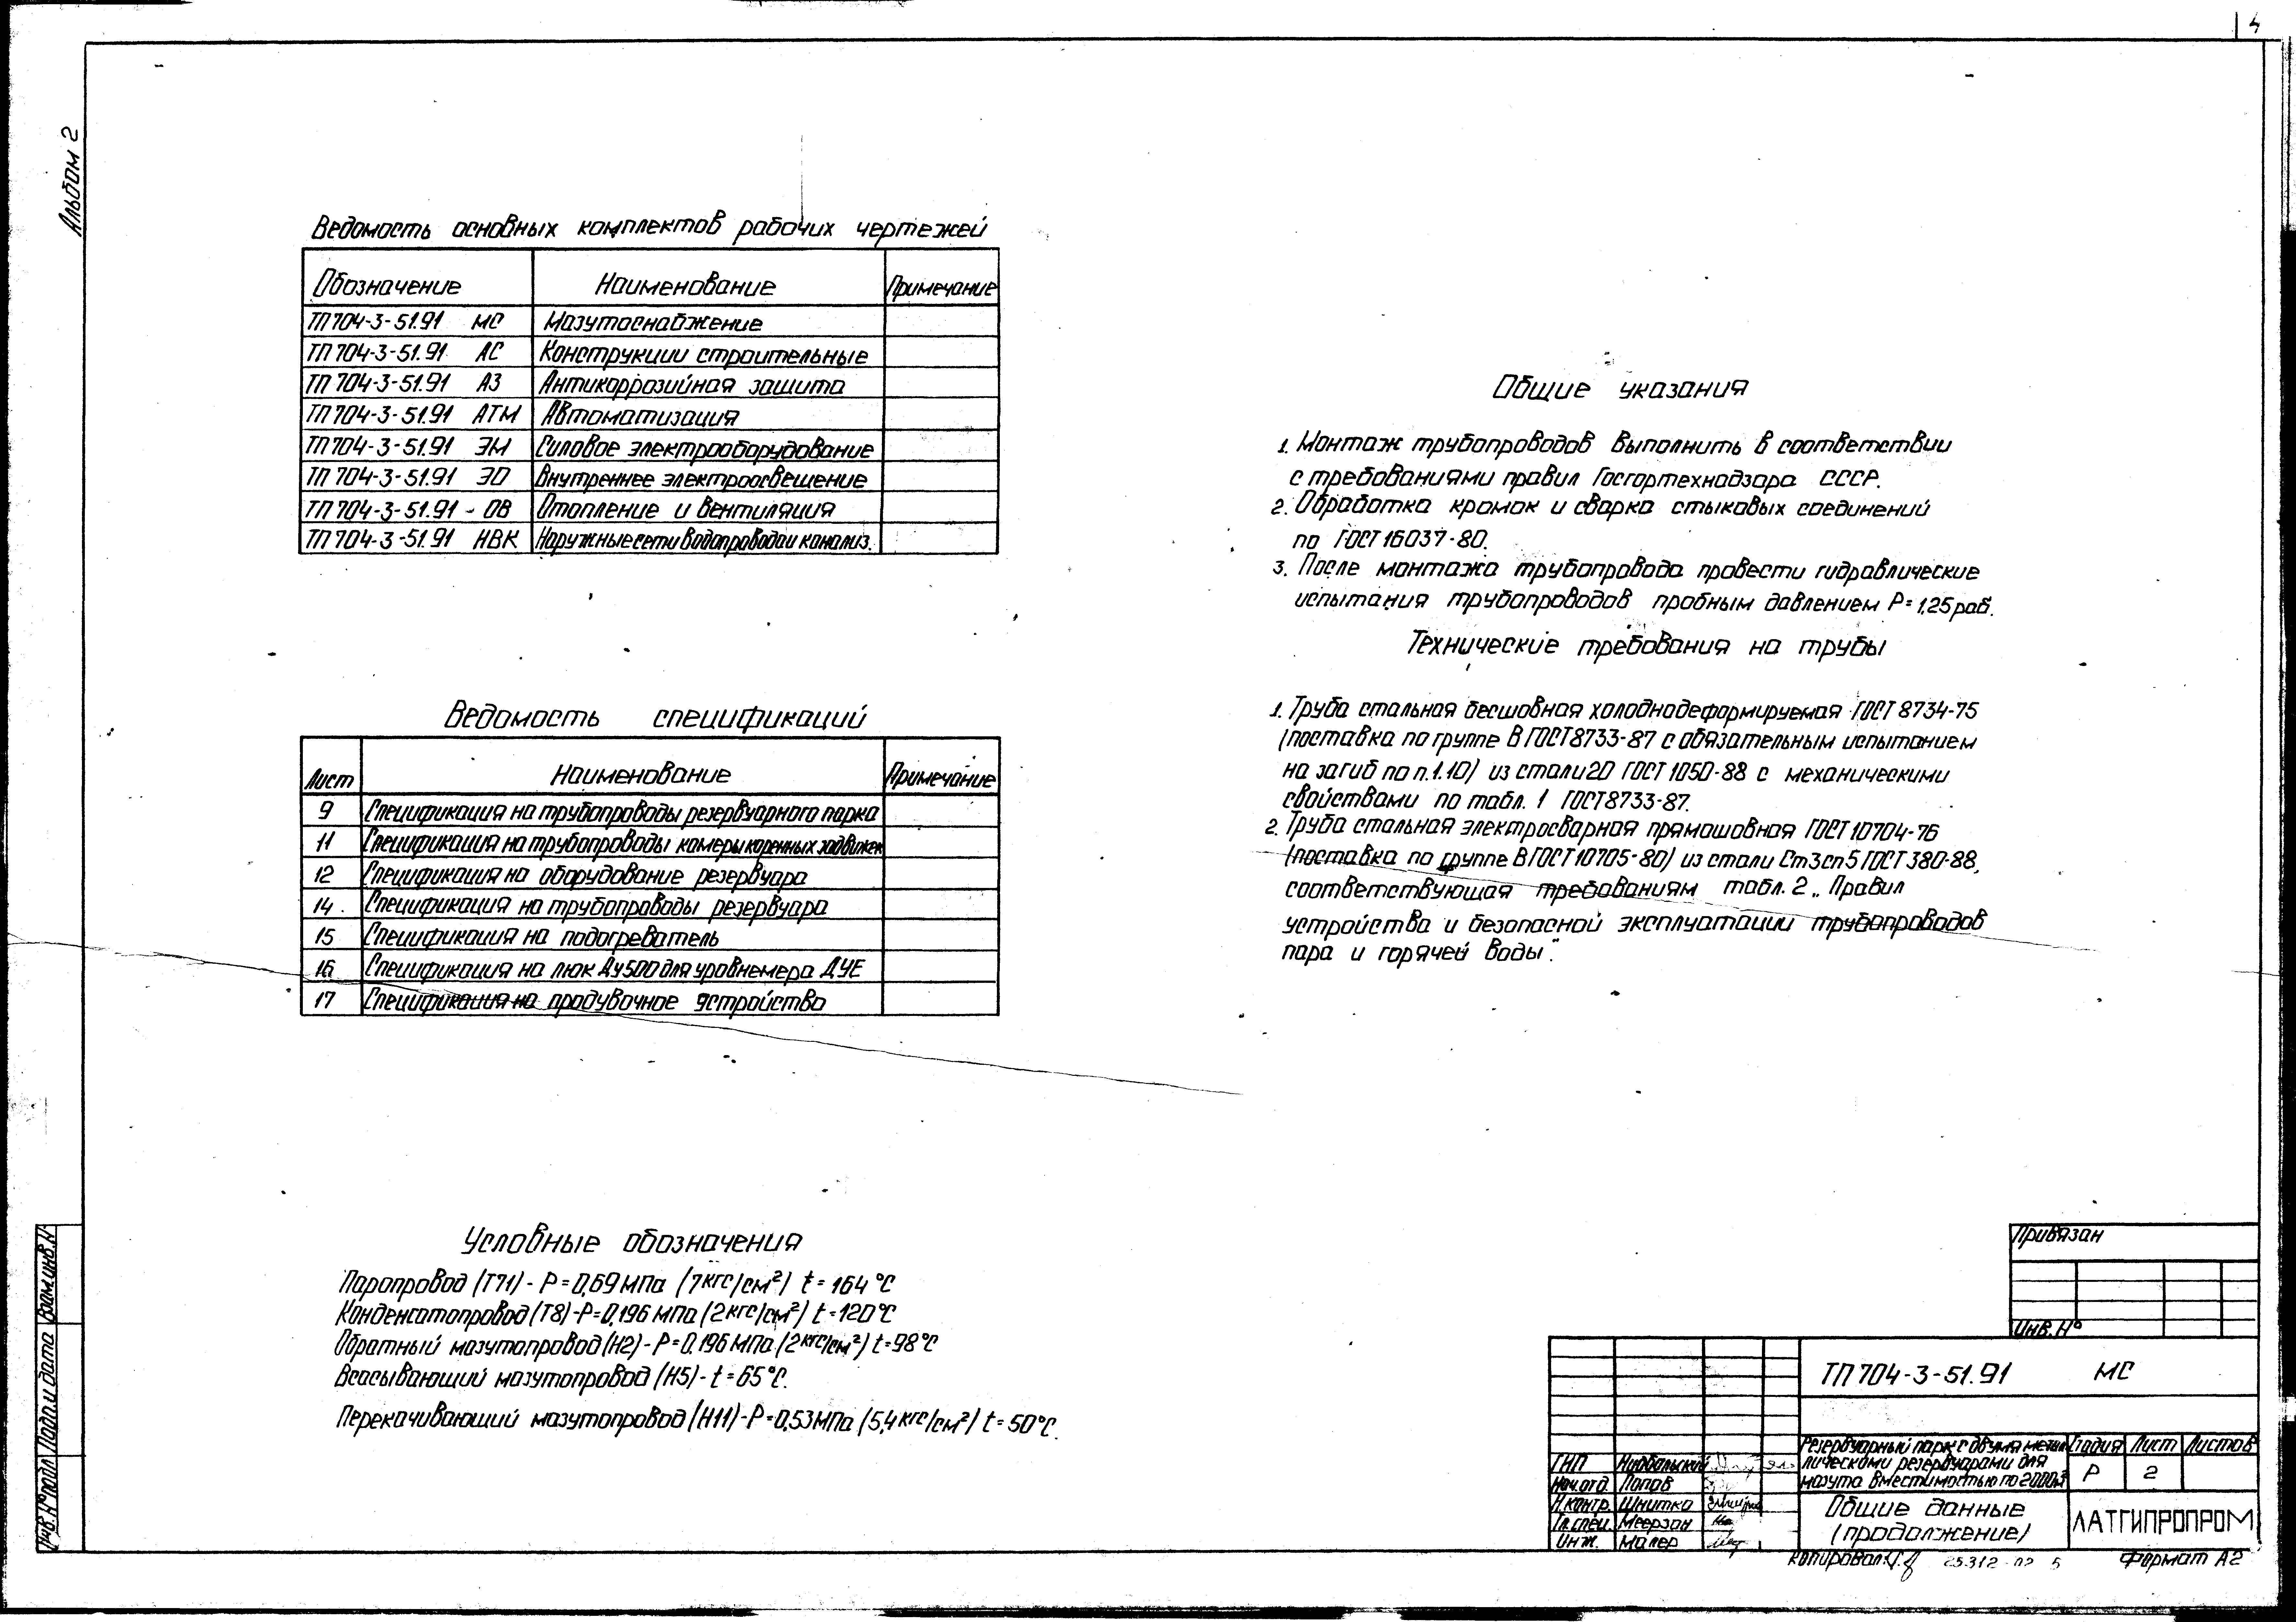 4
Альбом 2
Ведомость основных комплектов рабочих чертежей
Обозначение Наименование Примечание
ТП 704-3-51.91 МС Мазутоснабжение
ТП 704-3-51.91 АС Конструкции строительные
ТП 704-3-51.91 АЗ Антикоррозийная защита
ТП 704-3-51.91 АТМ Автоматизация
ТП 704-3-51.91 ЭМ Силовое электрооборудование
ТП 704-3-51.91 ЭО Внутреннее электроосвещение
ТП 704-3-51.91 - ОВ Отопление и вентиляция
ТП 704-3-51.91 НВК Наружные сети водопровода и канализ.
Ведомость спецификаций
Лист Наименование Примечание
9 Спецификация на трубопроводы резервуарного парка
11 Спецификация на трубопроводы камеры коренных задвижек
12 Спецификация на оборудование резервуара
14 Спецификация на трубопроводы резервуара
15 Спецификация на подогреватель
16 Спецификация на люк Ду500 для уровнемера ДУЕ
17 Спецификация на продувочное устройство
Условные обозначения
Паропровод (Т71) - Р = 0,69 МПа (7 кгс/см²) t = 164 °С
Конденсатопровод (Т8) - Р = 0,196 МПа (2 кгс/см²) t = 120 °С
Обратный мазутопровод (Н2) - Р = 0,196 МПа (2 кгс/см²) t = 98 °С
Всасывающий мазутопровод (Н5) - t = 65 °С.
Перекачивающий мазутопровод (Н11) - Р = 0,53 МПа (5,4 кгс/см²) t = 50 °С.
Общие указания
1. Монтаж трубопроводов выполнить в соответствии
с требованиями правил Госгортехнадзора СССР.
2. Обработка кромок и сварка стыковых соединений
по ГОСТ 16037-80.
3. После монтажа трубопровода провести гидравлические
испытания трубопроводов пробным давлением Р = 1,25 раб.
Технические требования на трубы
1. Труба стальная бесшовная холоднодеформируемая ГОСТ 8734-75
(поставка по группе В ГОСТ 8733-87 с обязательным испытанием
на загиб по п. 1.10) из стали 20 ГОСТ 1050-88 с механическими
свойствами по табл. 1 ГОСТ 8733-87.
2. Труба стальная электросварная прямошовная ГОСТ 10704-76
(поставка по группе В ГОСТ 10705-80) из стали Ст3сп5 ГОСТ 380-88,
соответствующая требованиям табл. 2 „Правил
устройства и безопасной эксплуатации трубопроводов
пара и горячей воды".
Привязан
Инв. №
ТП 704-3-51.91 МС
Резервуарный парк с двумя метал
лическими резервуарами для
мазута вместимостью по 2000 м3
Стадия Лист Листов
Р 2
ГИП
Нач. отд. Попов
Н. контр. Шнитко
Гл. спец. Меерзон
Инж. Малер
Общие данные
(продолжение)
ЛАТГИПРОПРОМ
Копировал
Формат А2
Инв. № подл. Подп. и дата Взам. инв. №